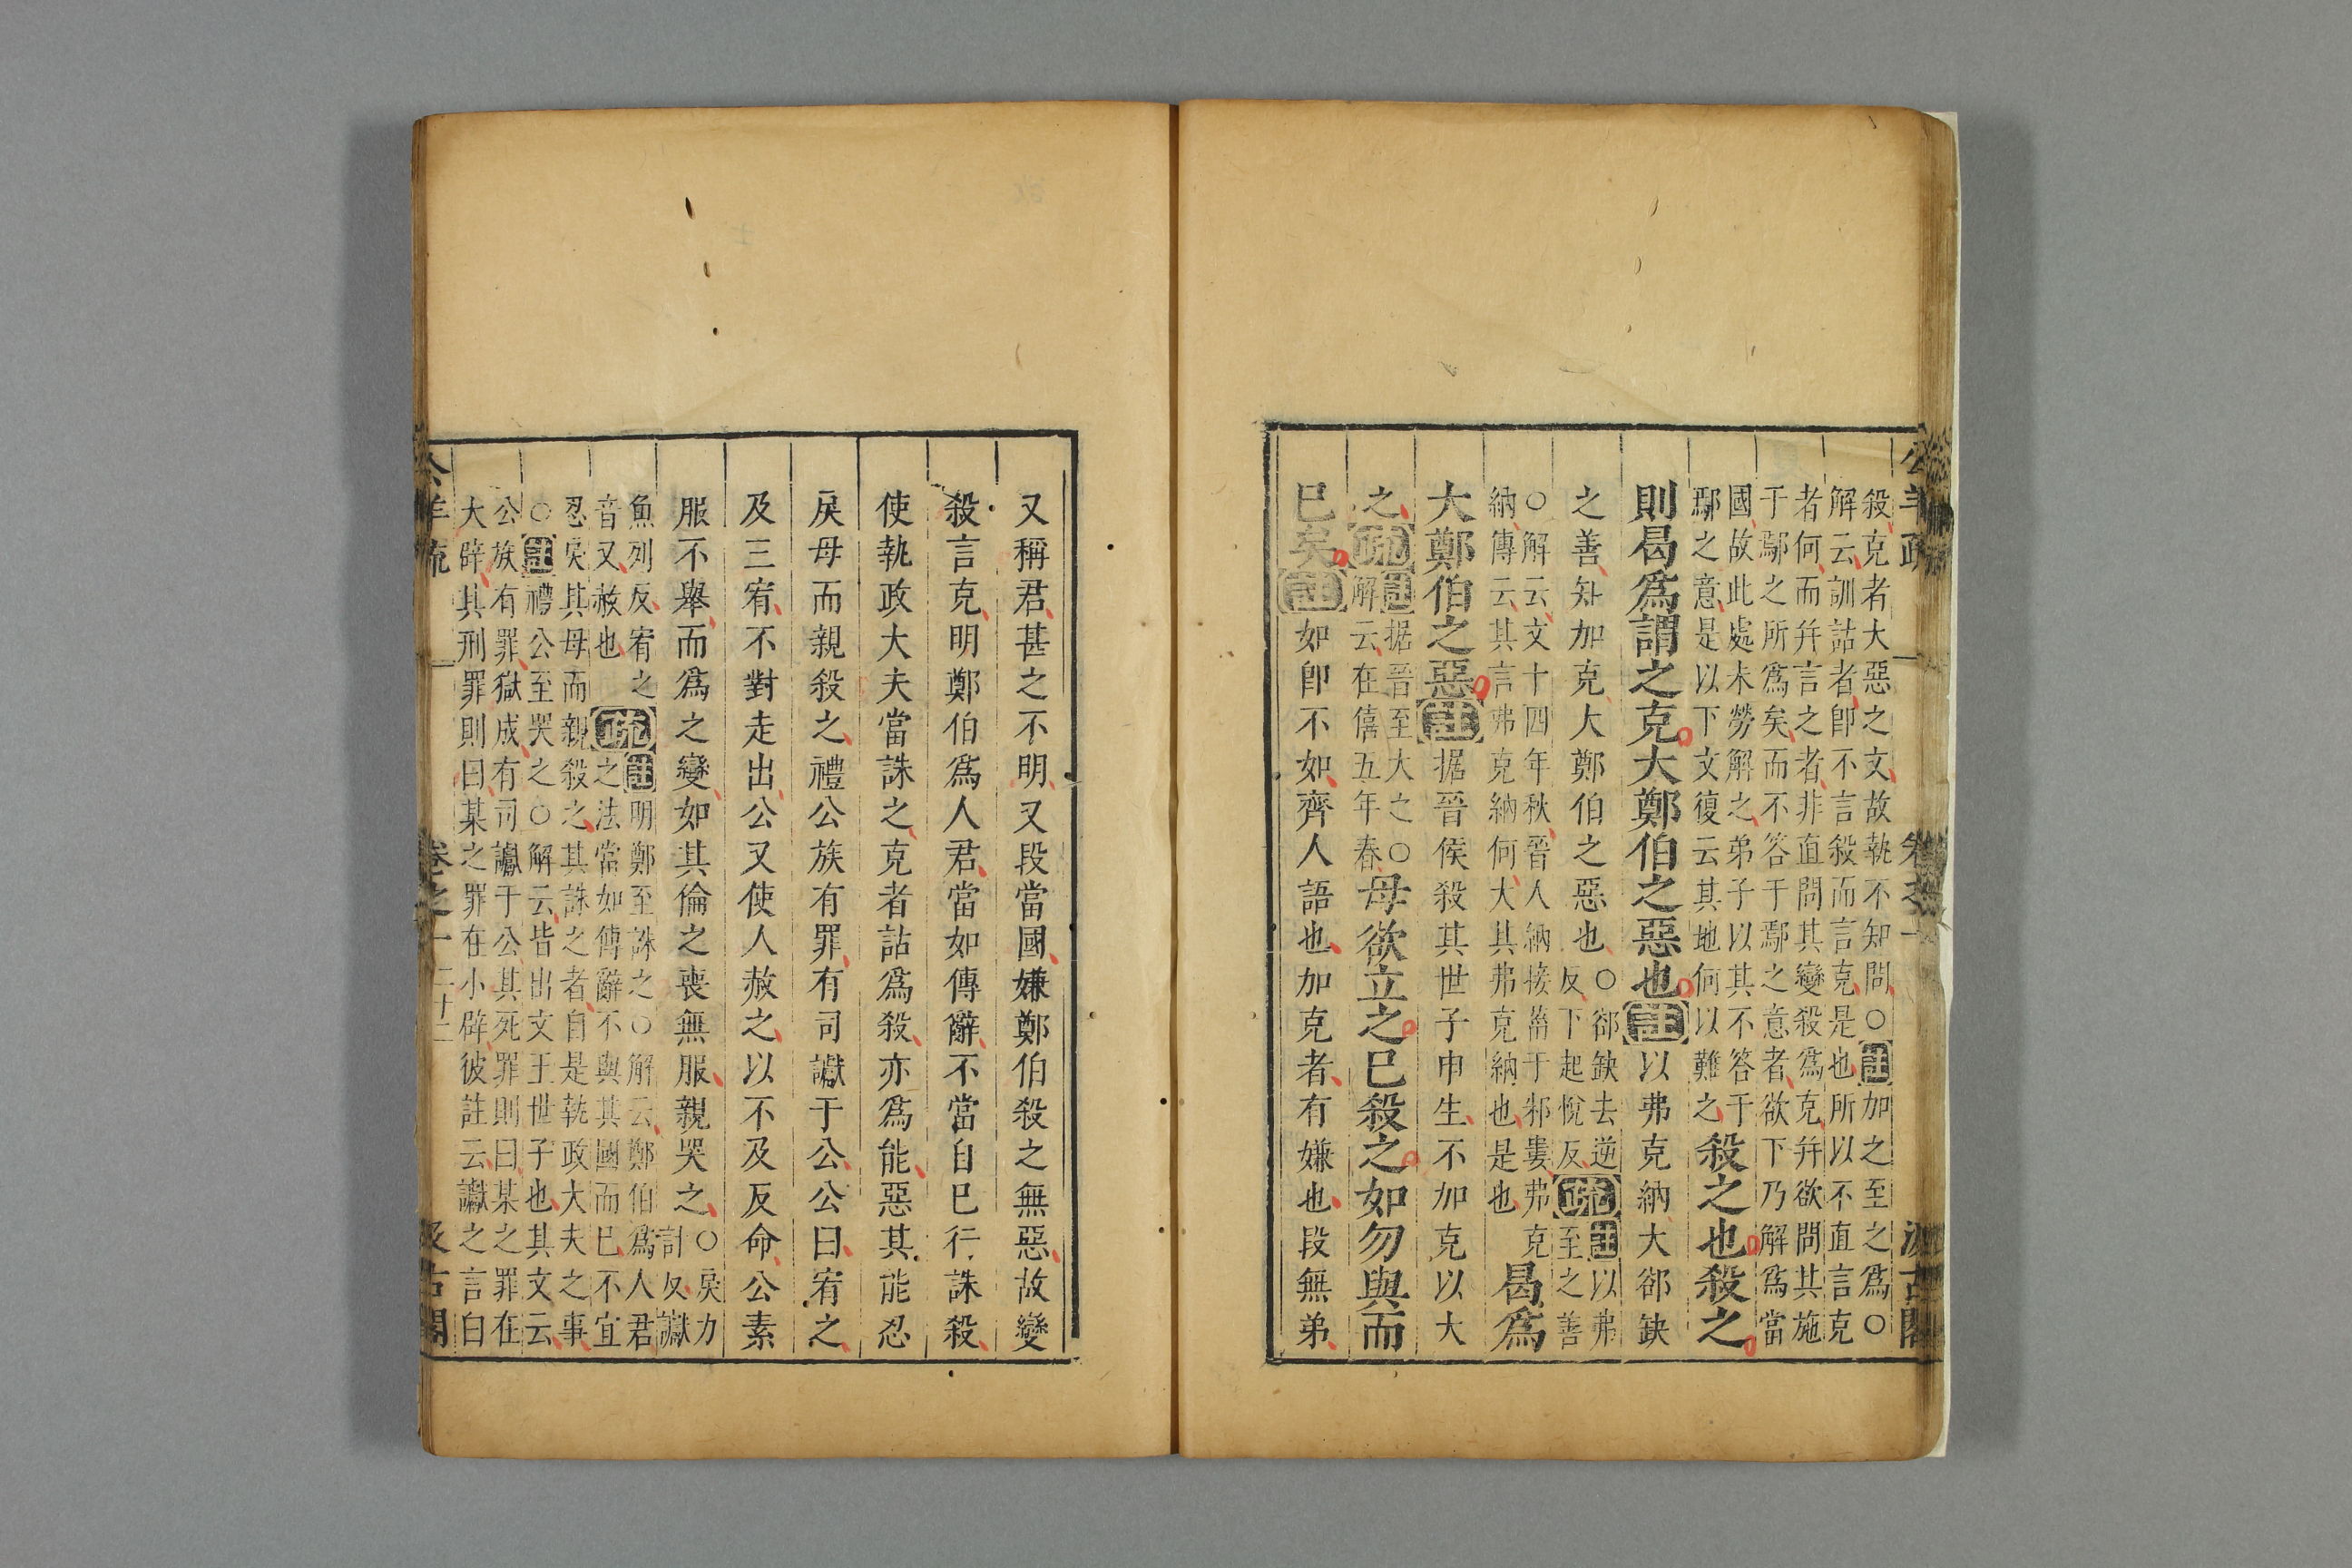 公羊疏 卷之一 汲古閣
殺克者大惡之文故執不知問○註加之至之爲○
解云訓詁者卽不言殺而言克是也所以不直言克
者何而幷言之者非直問其變殺爲克幷欲問其施
于鄢之所爲矣而不答于鄢之意者欲下乃解爲當
國故此處未勞解之弟子以其不答于
鄢之意是以下文復云其地何以難之
殺之也殺之
則曷爲謂之克大鄭伯之惡也註以弗克納大郤缺
之善知加克大鄭伯之惡也
○郤缺去逆
反下起悅反
疏
註以弗
至之善
○解云文十四年秋晉人納接菑于邾婁弗克
納傳云其言弗克納何大其弗克納也是也
曷爲
大鄭伯之惡註据晉侯殺其世子申生不加克以大
之疏
註据晉至大之○
解云在僖五年春
母欲立之已殺之如勿與而
已矣註如卽不如齊人語也加克者有嫌也段無弟
又稱君甚之不明又段當國嫌鄭伯殺之無惡故變
殺言克明鄭伯爲人君當如傳辭不當自已行誅殺
使執政大夫當誅之克者詁爲殺亦爲能惡其能忍
戾母而親殺之禮公族有罪有司讞于公公曰宥之
及三宥不對走出公又使人赦之以不及反命公素
服不舉而爲之變如其倫之喪無服親哭之
○戾力
計反讞
魚列反宥之
音又赦也
疏
註明鄭至誅之○解云鄭伯爲人君
之法當如傳辭不與其國而已不宜
忍戾其母而親殺之其誅之者自是執政大夫之事
○註禮公至哭之○解云皆出文王世子也其文云
公族有罪獄成有司讞于公其死罪則曰某之罪在
大辟其刑罪則曰某之罪在小辟彼註云讞之言白
公羊疏 卷之一 二十二 汲古閣